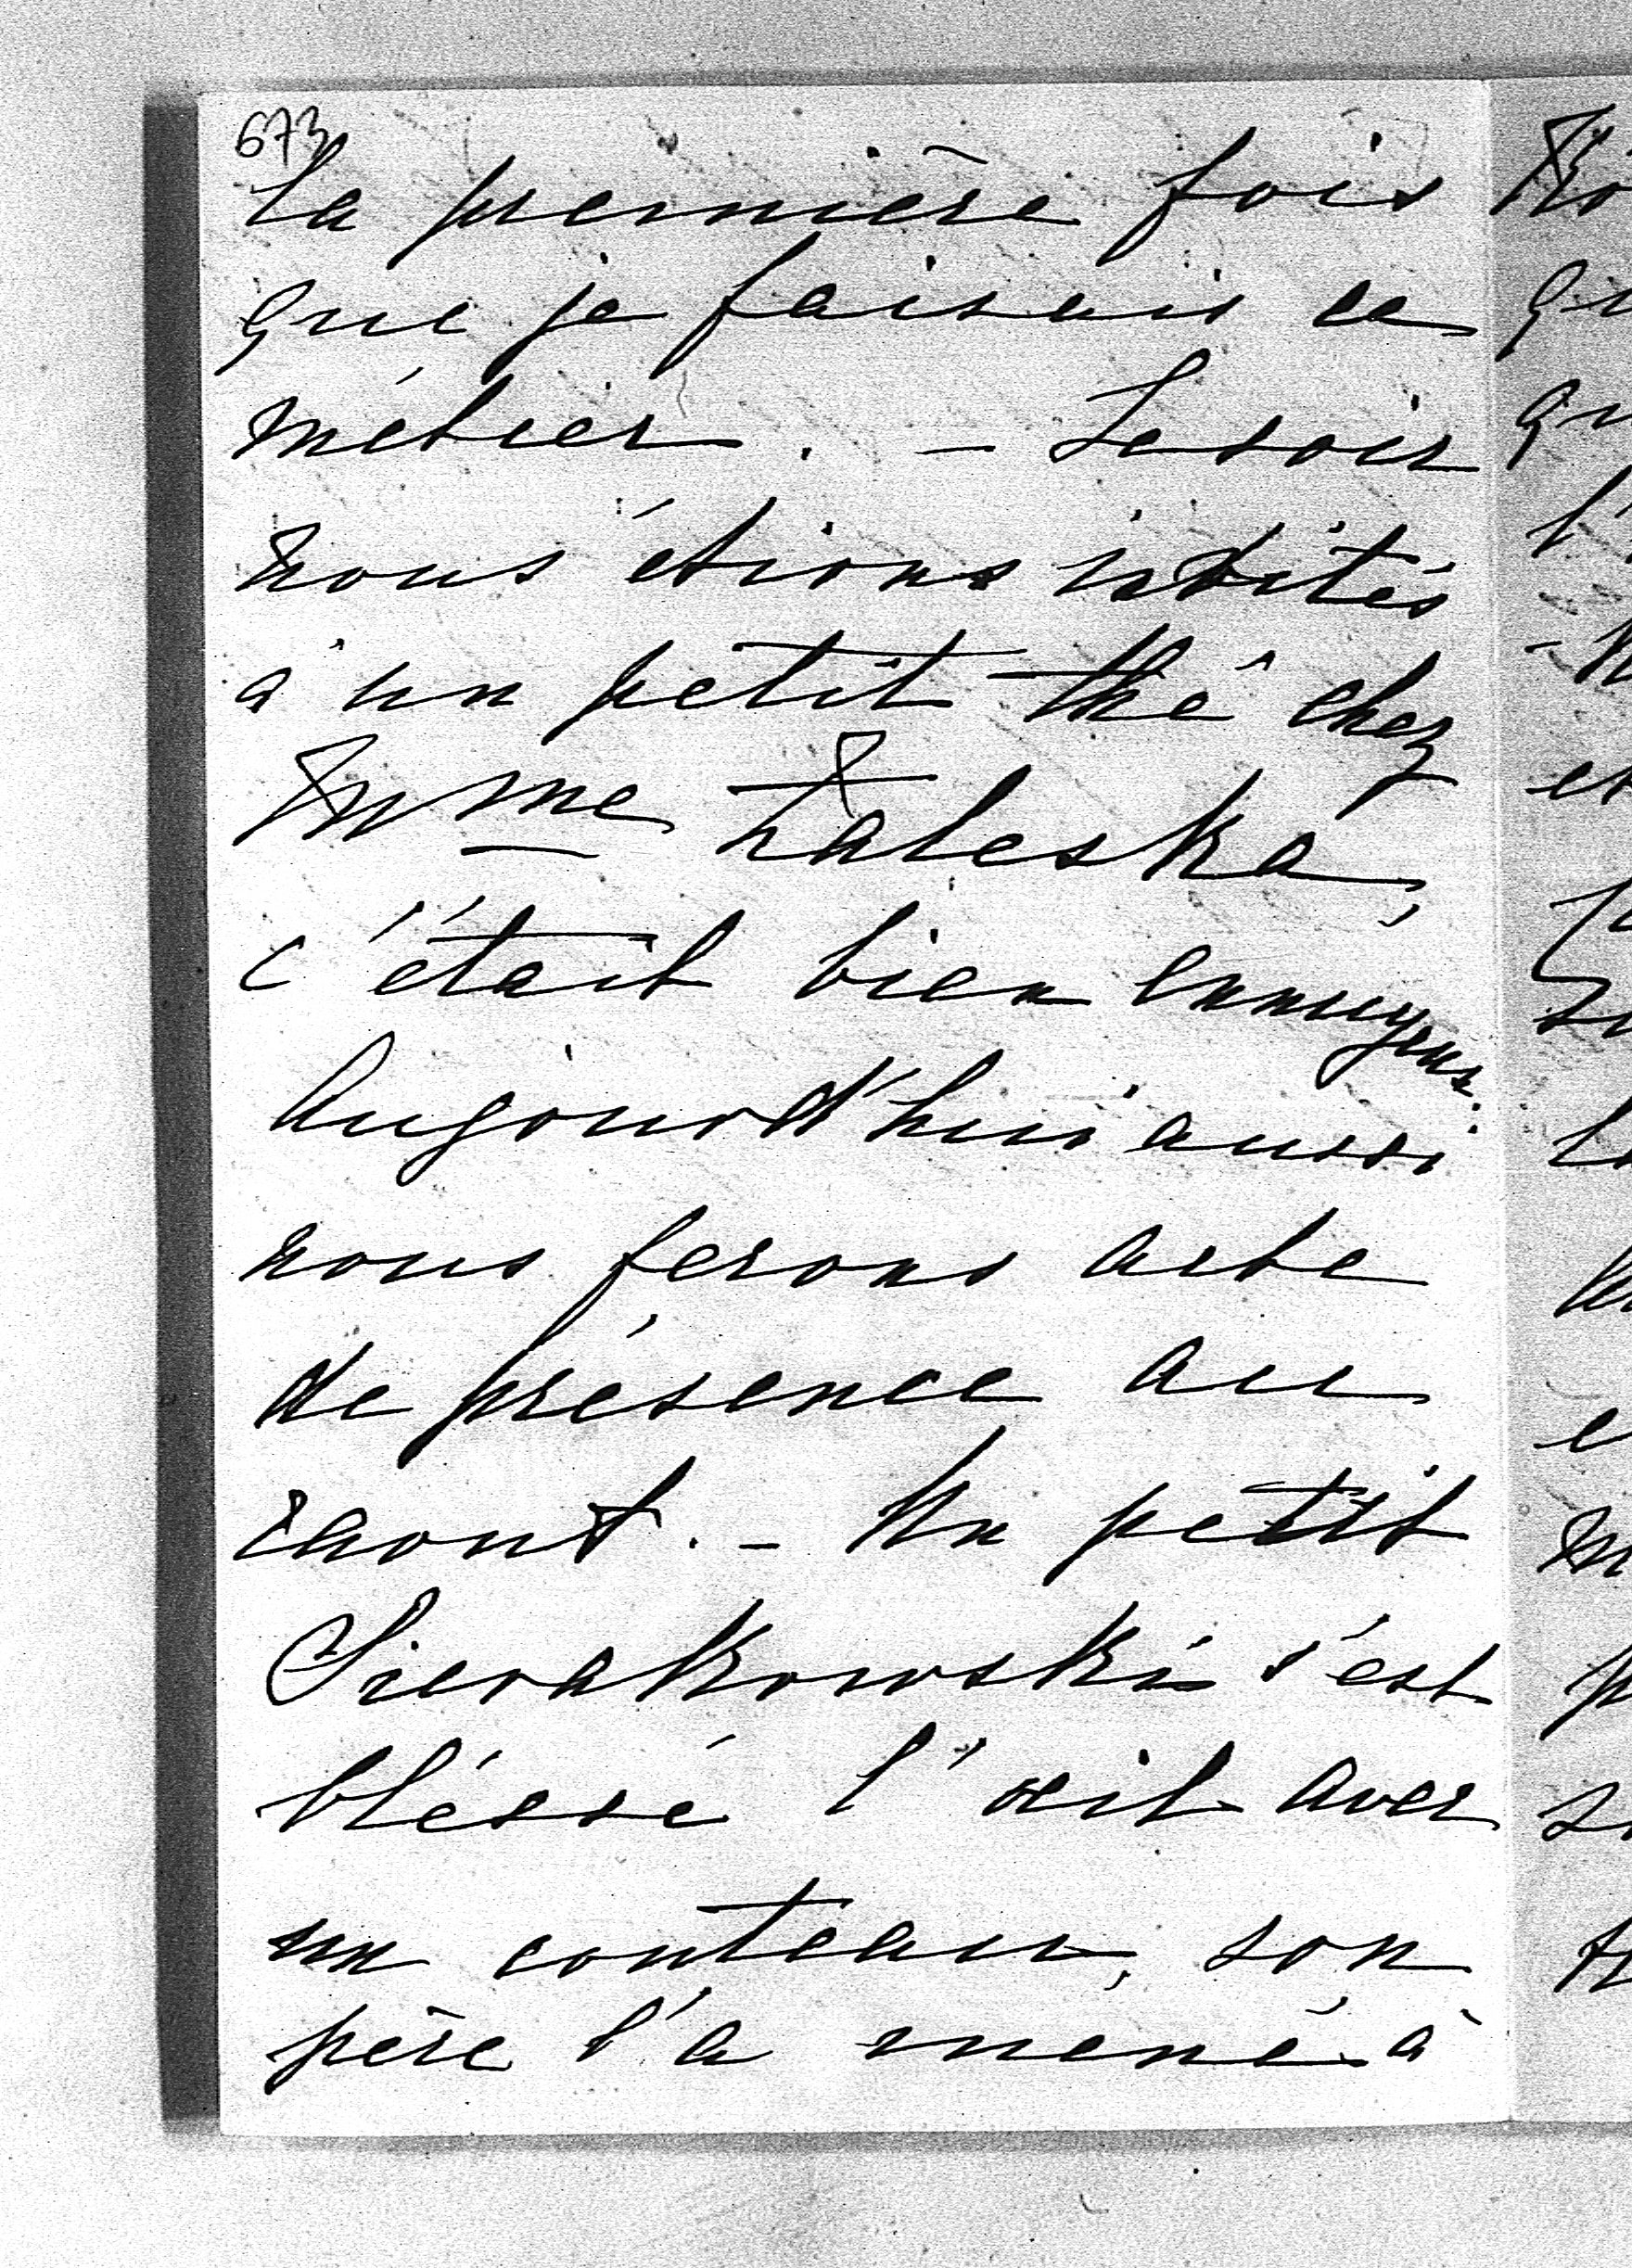 673
la première fois
que je faisais ce
métier. - Le soir
nous étions invités
à un petit thé chez
Mme Zaleska,
c'était bien ennuyeux.
Aujourd'hui aussi
nous ferons acte
de présence au
raout. - Un petit
Sierakowski s'est
bléssé l'œil avec
un couteau, son
père l'a mené à